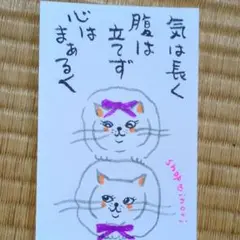 気は長く
腹は
立てず
心は
まあるく